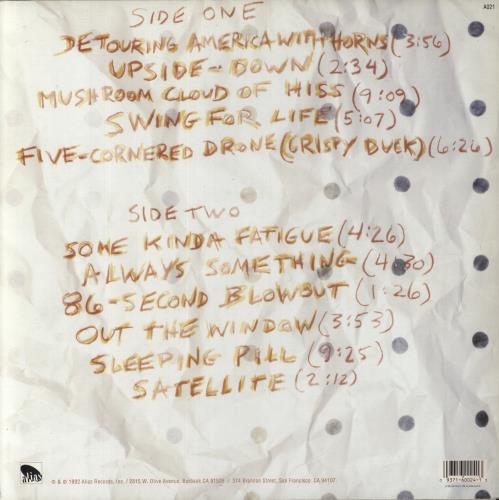 A021
SIDE ONE
DETOURING AMERICA WITH HORNS (3:56)
UPSIDE-DOWN (2:34)
MUSHROOM CLOUD OF HISS (9:09)
SWING FOR LIFE (5:07)
FIVE-CORNERED DRONE (CRISPY DUCK) (6:26)
SIDE TWO
SOME KINDA FATIGUE (4:26)
ALWAYS SOMETHING (4:30)
86-SECOND BLOWOUT (1:26)
OUT THE WINDOW (3:53)
SLEEPING PILL (9:25)
SATELLITE (2:12)
alias
℗ & © 1992 Alias Records, Inc. / 2815 W. Olive Avenue, Burbank CA 91505 / 374 Brannan Street, San Francisco, CA 94107
0 9371-60024-1